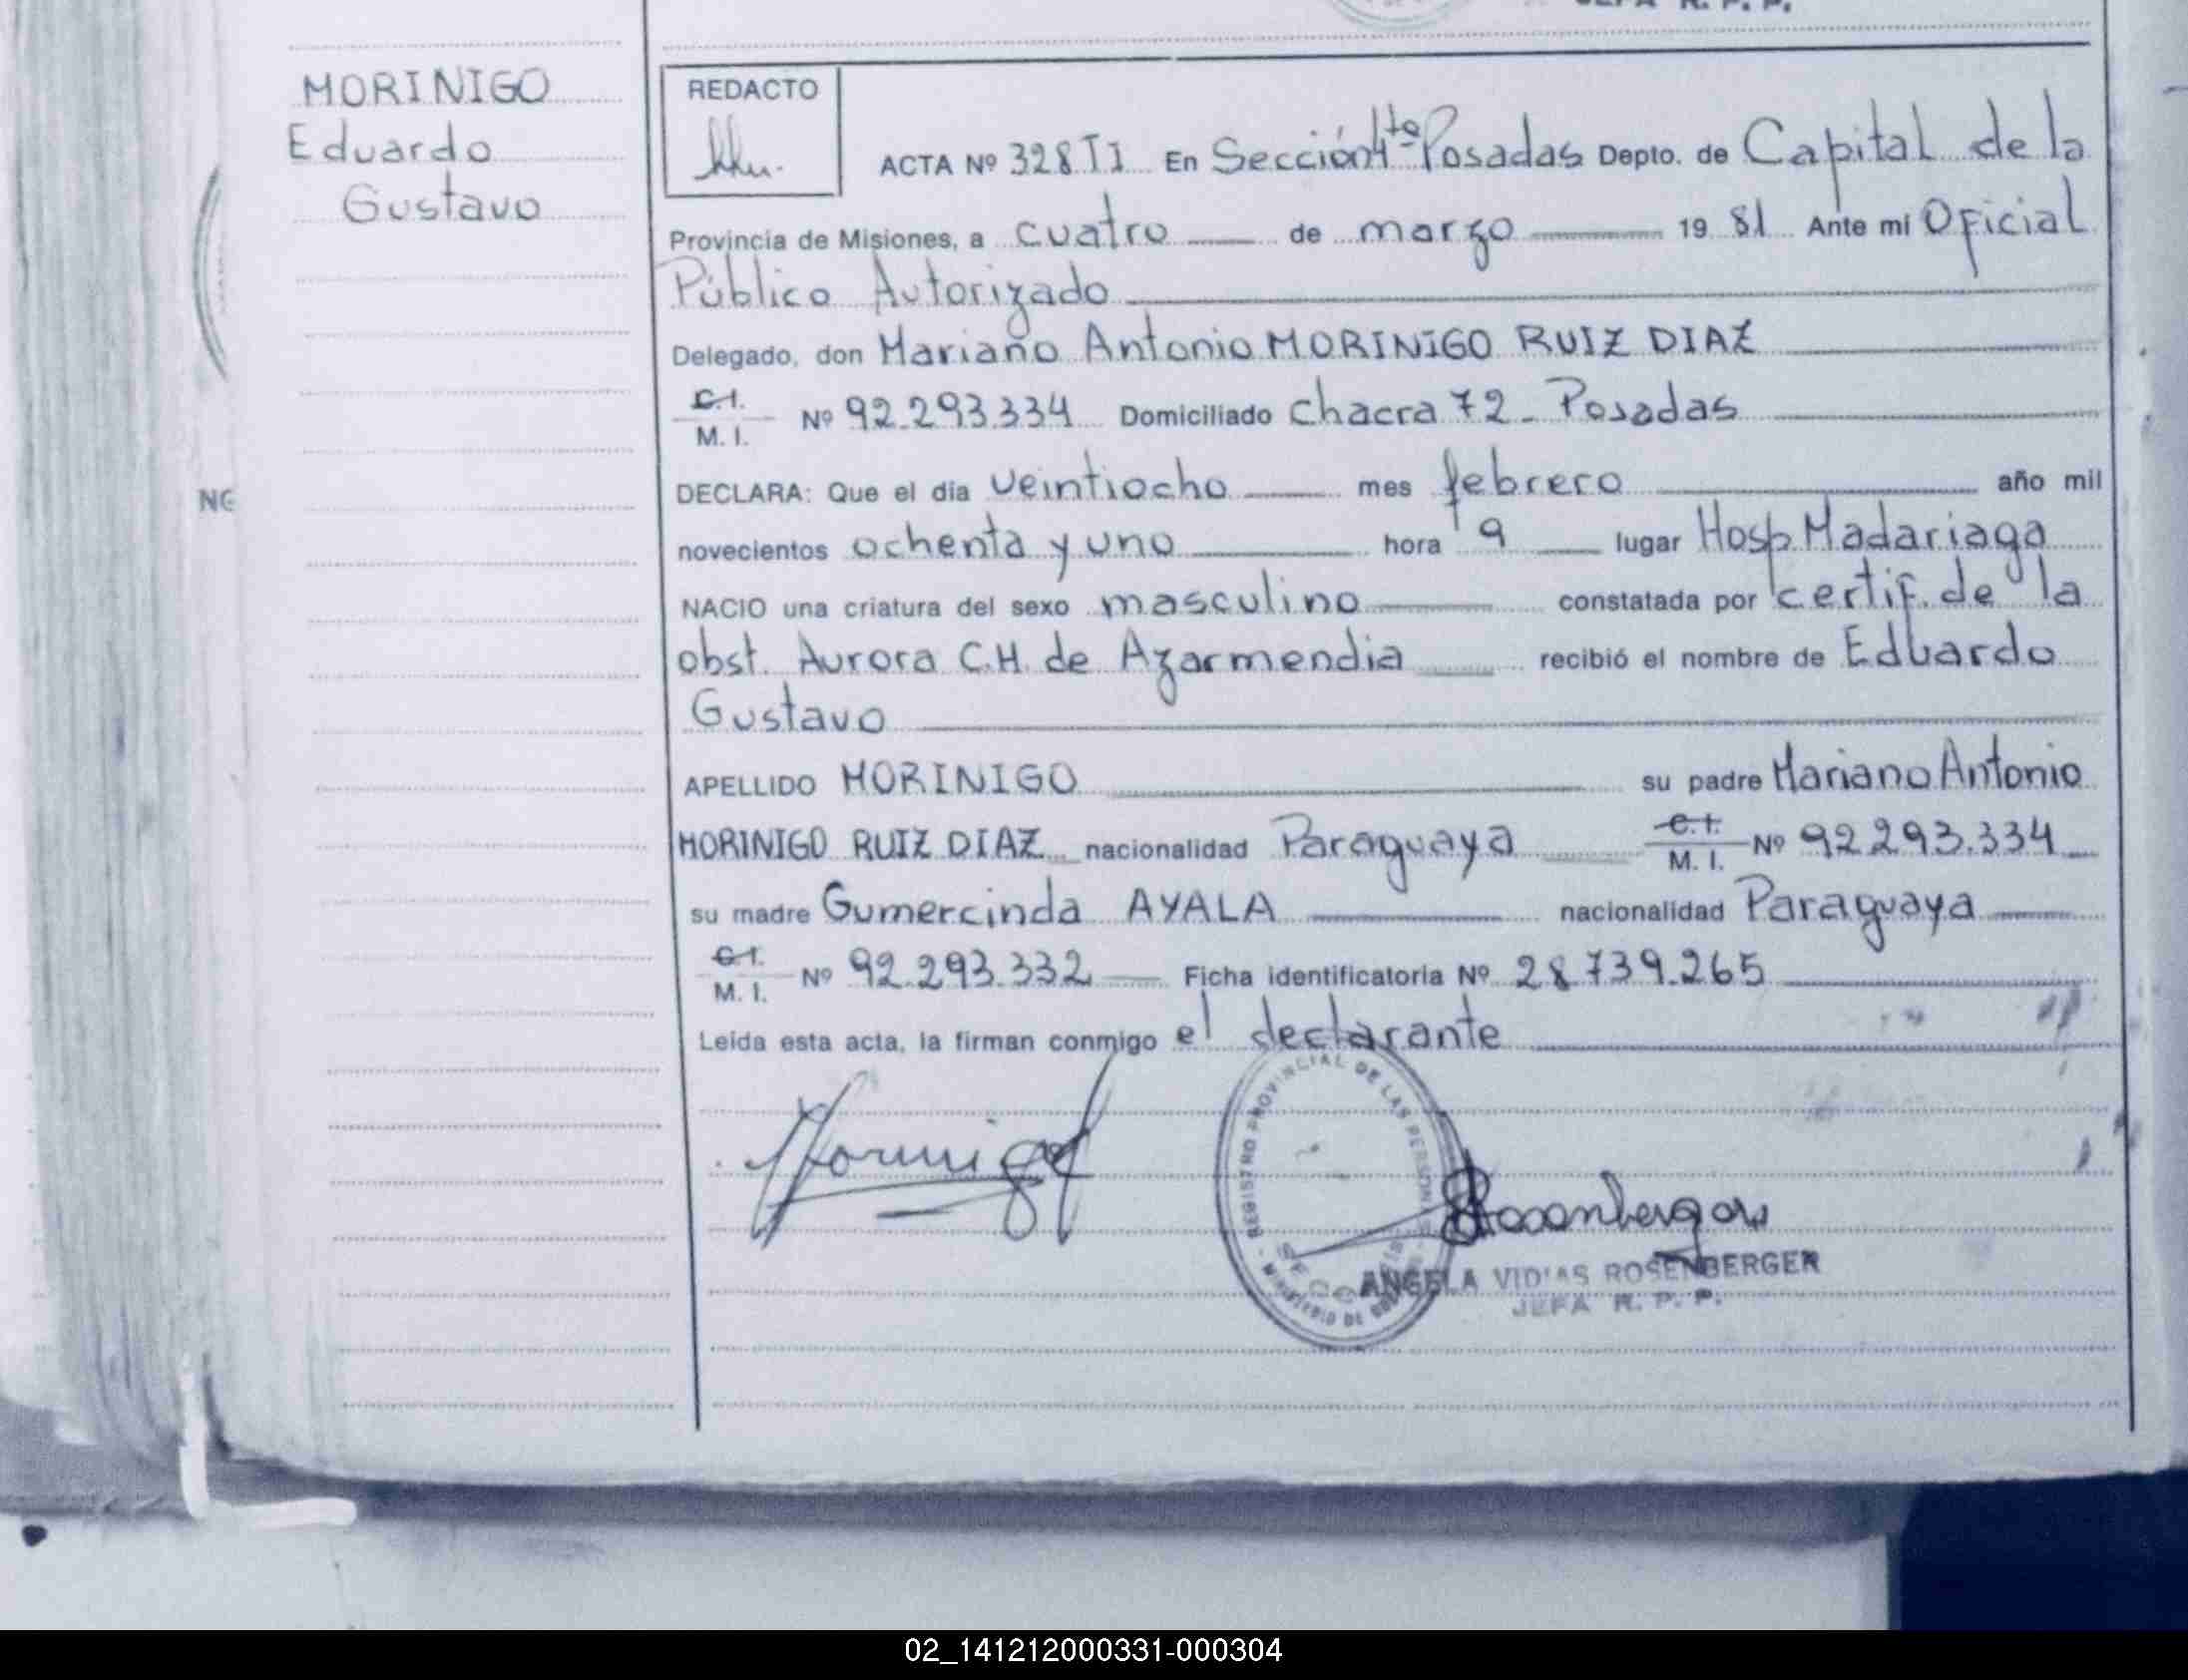 JEFA R. P. P.
MORINIGO
Eduardo
Gustavo
NG
REDACTO
ACTA Nº 328 TI En Sección 4ta Posadas Depto. de Capital de la
Provincia de Misiones, a cuatro de marzo 19 81 Ante mi Oficial
Público Autorizado
Delegado, don Mariano Antonio MORINIGO RUIZ DIAZ
C.I.
M. I. Nº 92.293.334 Domiciliado chacra 72 - Posadas
DECLARA: Que el día veintiocho mes febrero año mil
novecientos ochenta y uno hora 9 lugar Hosp. Madariaga
NACIO una criatura del sexo masculino constatada por certif. de la
obst. Aurora C.H. de Azarmendia recibió el nombre de Eduardo
Gustavo
APELLIDO MORINIGO su padre Mariano Antonio
MORINIGO RUIZ DIAZ nacionalidad Paraguaya C.I. M. I. Nº 92 293.334
su madre Gumercinda AYALA nacionalidad Paraguaya
C.I.
M. I. Nº 92.293.332 Ficha identificatoria Nº 28 739.265
Leída esta acta, la firman conmigo el declarante
REGISTRO PROVINCIAL DE LAS PERSONAS
MINISTERIO DE
ANGELA VIDIAS ROSENBERGER
JEFA R. P. P.
02_141212000331-000304